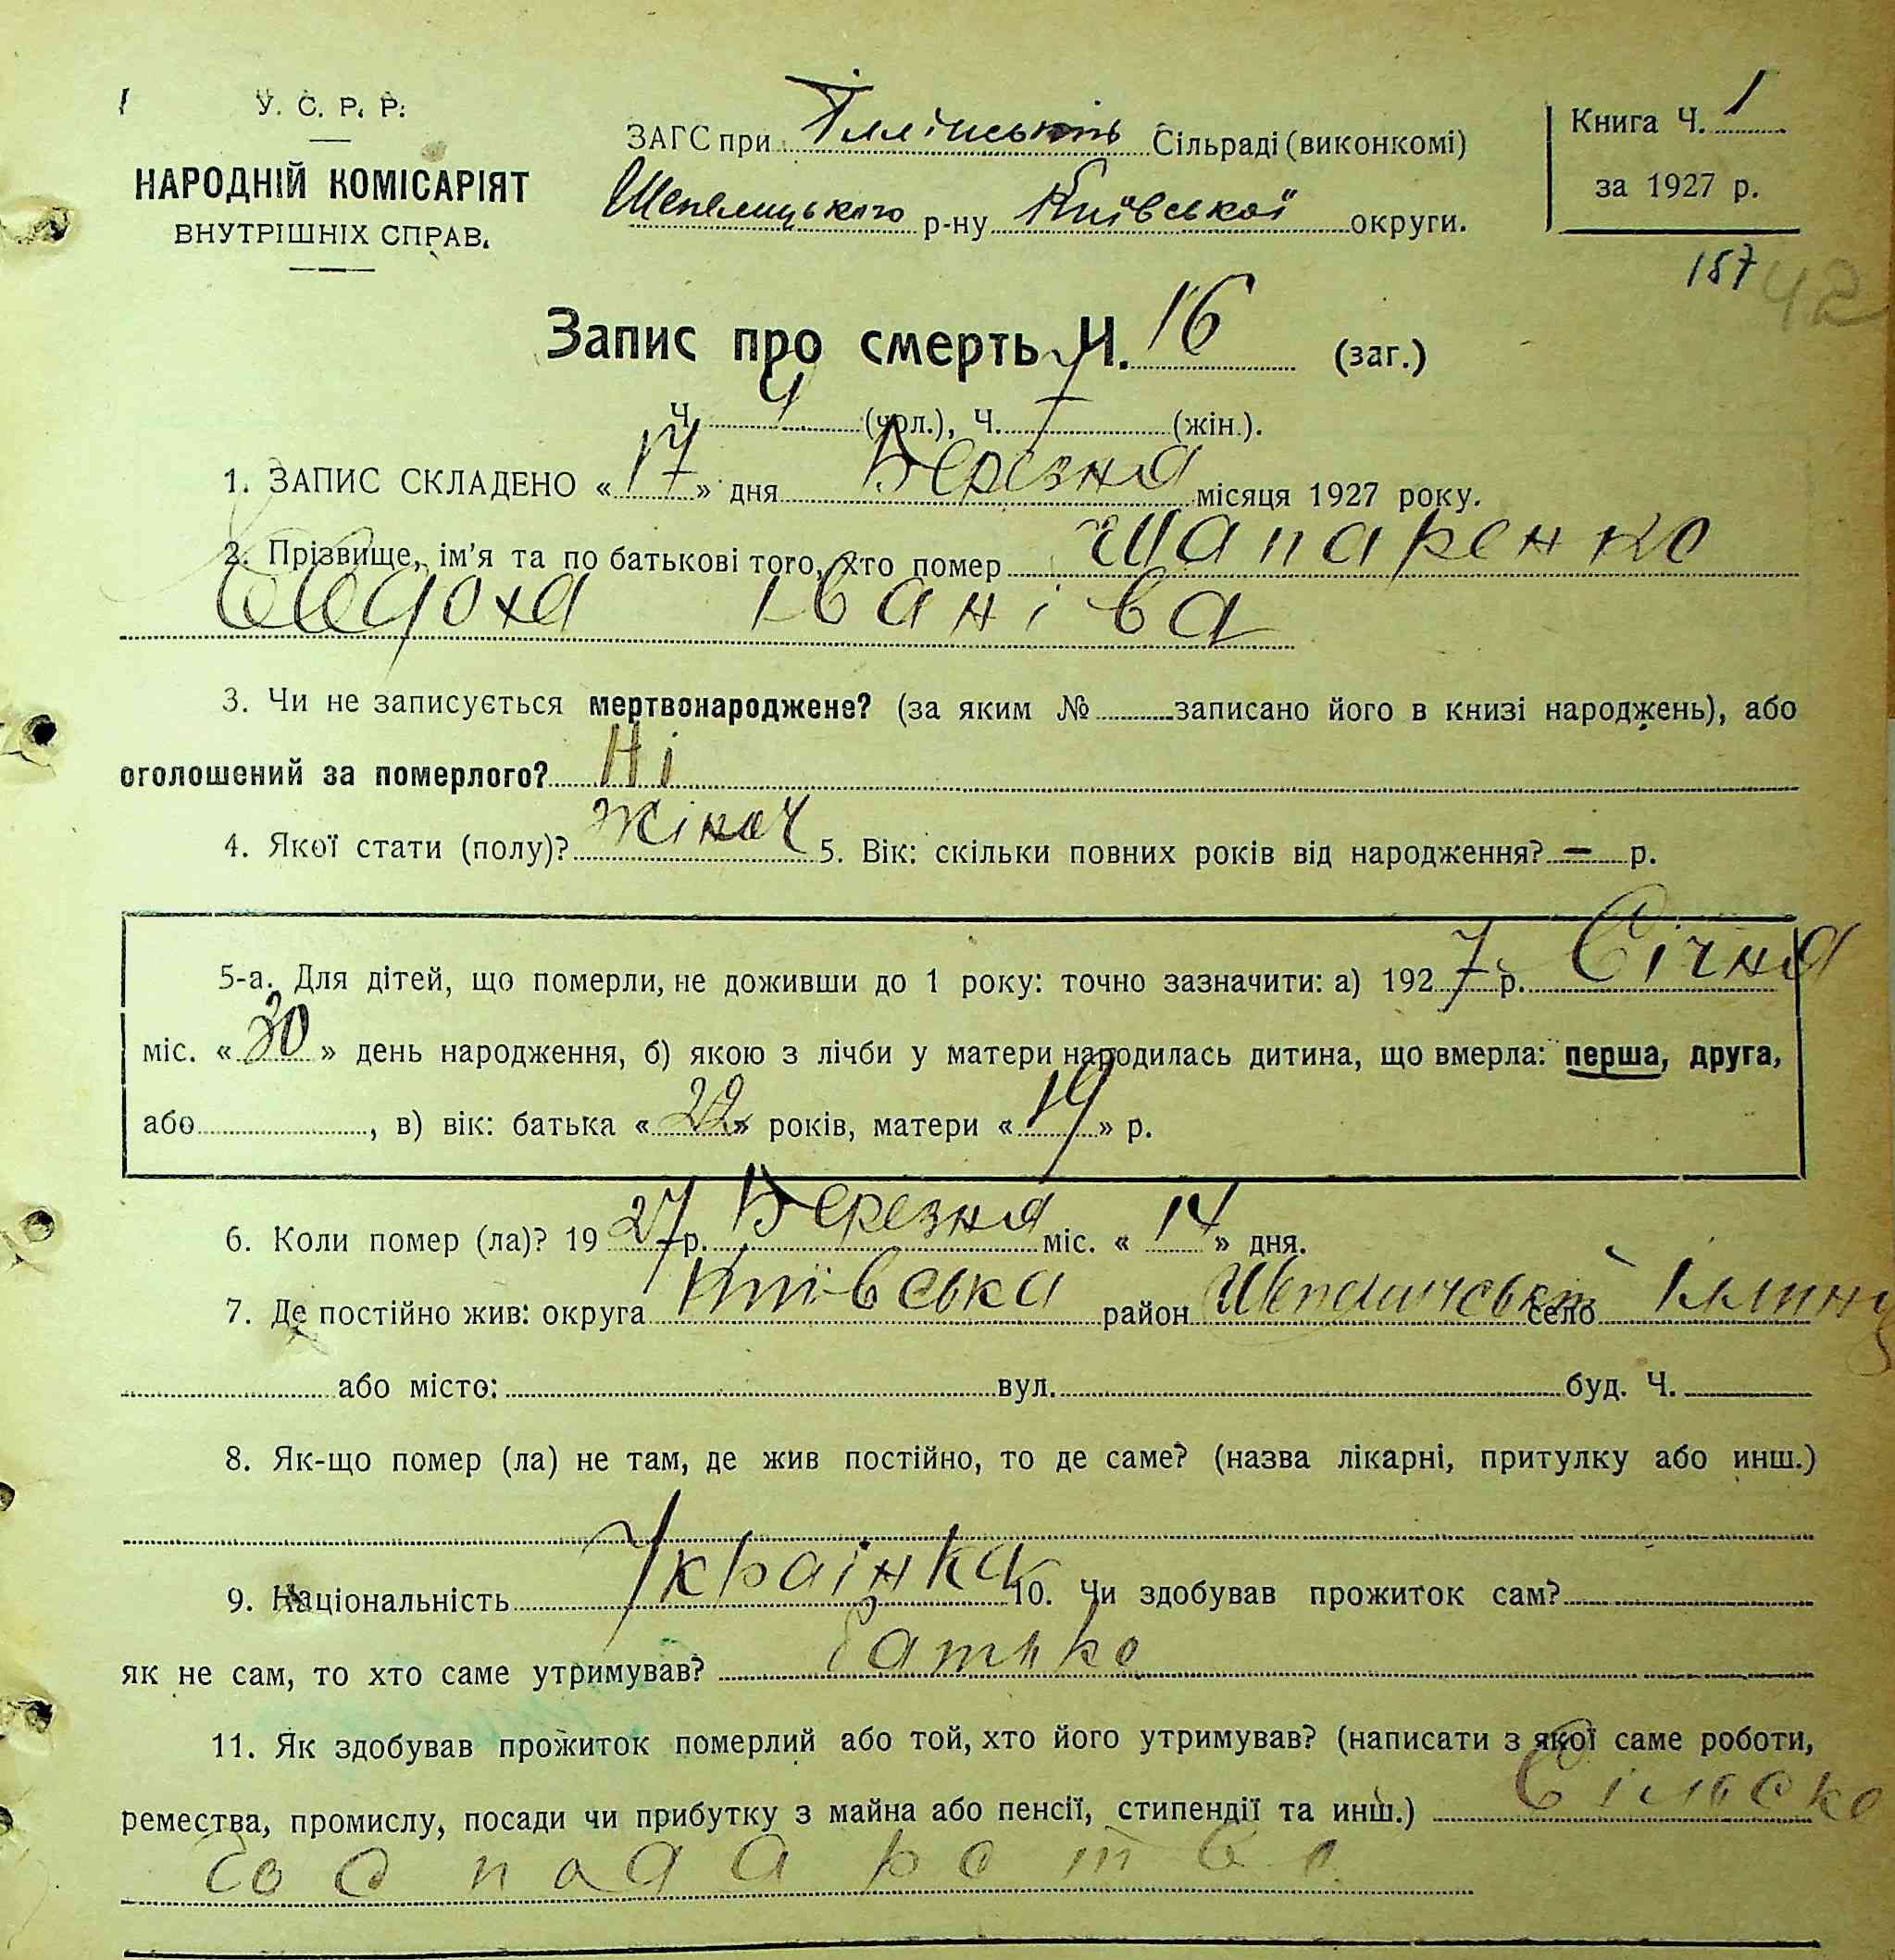 У. С. Р. Р.
НАРОДНІЙ КОМІСАРІЯТ
ВНУТРІШНІХ СПРАВ.
ЗАГС при Іллінській Сільраді (виконкомі)
Шепелицького р-ну Київської округи.
Книга Ч. 1
за 1927 р.
157 42
Запис про смерть Ч. 16 (заг.)
Ч. 9 (чол.), Ч. 7 (жін.).
1. ЗАПИС СКЛАДЕНО «17» дня Березня місяця 1927 року.
2. Прізвище, ім'я та по батькові того, хто помер Шапаренко
Явдоха Іваніва
3. Чи не записується мертвонароджене? (за яким № записано його в книзі народжень), або
оголошений за померлого? Ні
4. Якої стати (полу)? жіноч 5. Вік: скільки повних років від народження? — р.
5-а. Для дітей, що померли, не доживши до 1 року: точно зазначити: а) 1927 р. Січня
міс. «30» день народження, б) якою з лічби у матери народилась дитина, що вмерла: перша, друга,
або , в) вік: батька «22» років, матери «19» р.
6. Коли помер (ла)? 1927 р. Березня міс. «14» дня.
7. Де постійно жив: округа Київська район село
або місто: вул. буд. Ч.
8. Як-що помер (ла) не там, де жив постійно, то де саме? (назва лікарні, притулку або инш.)
9. Національність Украінка 10. Чи здобував прожиток сам?
як не сам, то хто саме утримував? батько
11. Як здобував прожиток померлий або той, хто його утримував? (написати з якої саме роботи,
ремества, промислу, посади чи прибутку з майна або пенсії, стипендії та инш.) Сільско
господарство